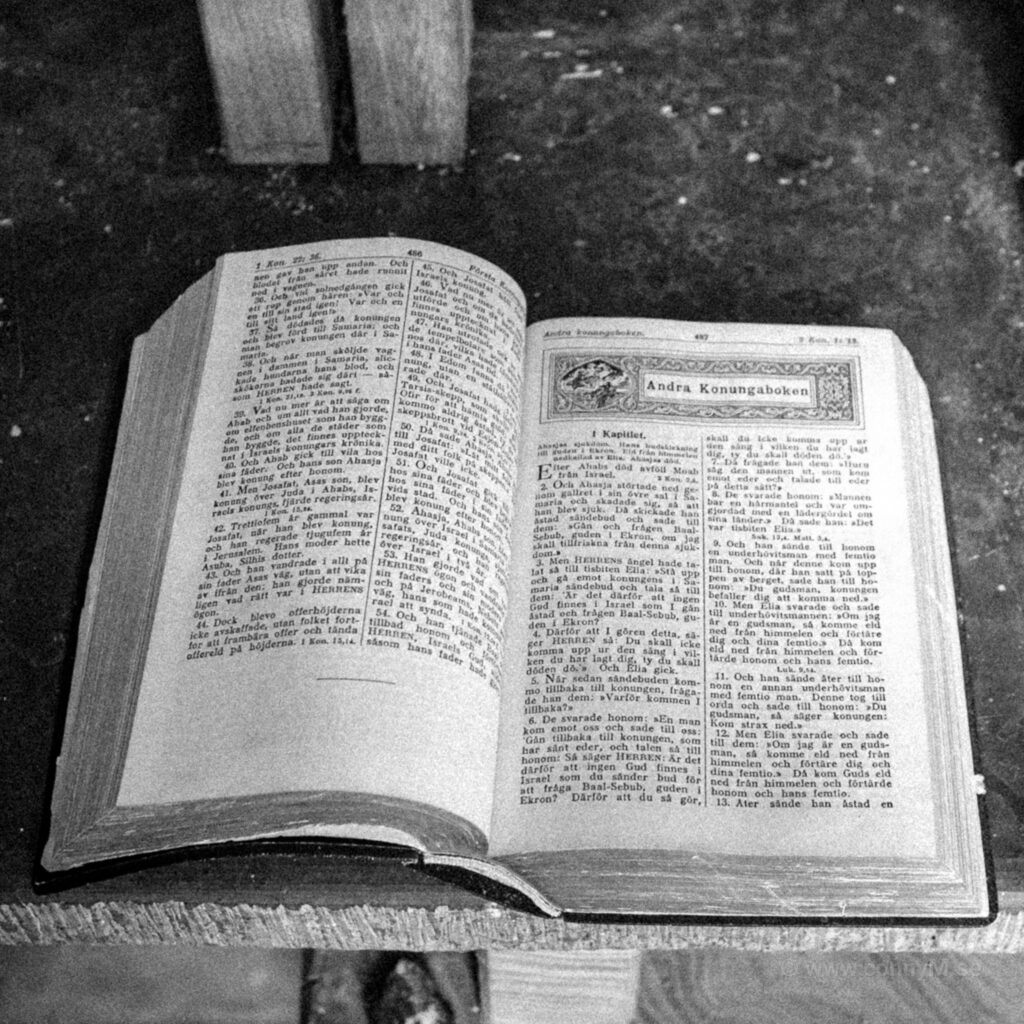 1 Kon. 22: 36. 486 Första
nen gav han upp andan. Och
blodet från såret hade runnit
ned i vagnen.
36. Och vid solnedgången gick
ett rop genom hären: »Var och
en till sin stad igen! Var och en
till sitt land igen!»
37. Så dödades då konungen
och blev förd till Samaria; och
man begrov konungen där i Sa-
maria.
38. Och när man sköljde vag-
nen i dammen i Samaria, slic-
kade hundarna hans blod, och
skökorna badade sig däri — så-
som HERREN hade sagt.
39. Vad nu mer är att säga om
Ahab och um allt vad han gjorde,
om elfenbenshuset som han bygg-
de, och om alla de städer som
han byggde, det finnes uppteck-
nat i Israels konungars krönika.
40. Och Ahab gick till vila hos
sina fäder. Och hans son Ahasja
blev konung efter honom.
41. Men Josafat, Asas son, blev
konung över Juda i Ahabs, Is-
raels konungs, fjärde regeringsår.
42. Trettiofem år gammal var
Josafat, när han blev konung,
och han regerade tjugufem år
i Jerusalem. Hans moder hette
Asuba, Silhis dotter.
43. Och han vandrade i allt på
sin fader Asas väg, utan att vika
av ifrån den: han gjorde näm-
ligen vad rätt var i HERRENS
ögon.
44. Dock blevo offerhöjderna
icke avskaffade, utan folket fort-
for att frambära offer och tända
offereld på höjderna.
45. Och Josafat
Israels konung.
46. Vad nu
Josafat och om
utförde och om
finnes upptecknat
nungars krönika.
47. Han utrotade
de tempelbolare
nos där, vilka
i hans fader Asas
48. I Edom
nung, utan en
rade där.
49. Och Josafat hade
Tarsis-skepp, som
Ofir för att hämta
kommo aldrig
skeppsbrott vid
50. Då sade
till Josafat:
med ditt folk på
Josafat ville icke
51. Och Josafat gick
hos sina fäder
hos sina fäder i
vids stad. Och
blev konung efter
52. Ahasja, Ahabs
nung över Israel i
safats, Juda konungs
regeringsår, och
över Israel i två
53. Han gjorde vad
HERRENS ögon och
sin faders och sin
och på Jerobeams,
väg, hans som hade
rael att synda.
54. Och han tjänade
tillbad honom och
HERREN, Israels Gud,
såsom hans fader hade
Andra konungaboken. 487 2 Kon. 1: 13.
Andra Konungaboken
1 Kapitlet.
Ahasjas sjukdom. Hans budskickning
till guden i Ekron. Eld från himmelen
nedkallad av Elia. Ahasjas död.
Efter Ahabs död avföll Moab
från Israel.
2. Och Ahasja störtade ned ge-
nom gallret i sin övre sal i Sa-
maria och skadade sig, så att
han blev sjuk. Då skickade han
åstad sändebud och sade till
dem: »Gån och frågen Baal-
Sebub, guden i Ekron, om jag
skall tillfriskna från denna sjuk-
dom.»
3. Men HERRENS ängel hade ta-
lat så till tisbiten Elia: »Stå upp
och gå emot konungens i Sa-
maria sändebud och tala så till
dem: 'Är det därför att ingen
Gud finnes i Israel som I gån
åstad och frågen Baal-Sebub, gu-
den i Ekron?
4. Därför att I gören detta, sä-
ger HERREN så: Du skall icke
komma upp ur den säng i vil-
ken du har lagt dig, ty du skall
döden dö.'» Och Elia gick.
5. När sedan sändebuden kom-
mo tillbaka till konungen, fråga-
de han dem: »Varför kommen I
tillbaka?»
6. De svarade honom: »En man
kom emot oss och sade till oss:
'Gån tillbaka till konungen, som
har sänt eder, och talen så till
honom: Så säger HERREN: Är det
därför att ingen Gud finnes i
Israel som du sänder bud för
att fråga Baal-Sebub, guden i
Ekron? Därför att du så gör,
skall du icke komma upp ur
den säng i vilken du har lagt
dig, ty du skall döden dö.'»
7. Då frågade han dem: »Huru
såg den mannen ut, som kom
emot eder och talade till eder
på detta sätt?»
8. De svarade honom: »Mannen
bar en hårmantel och var om-
gjordad med en lädergördel om
sina länder.» Då sade han: »Det
var tisbiten Elia.»
Sak. 13,4. Matt. 3,4.
9. Och han sände till honom
en underhövitsman med femtio
man. Och när denne kom upp
till honom, där han satt på top-
pen av berget, sade han till ho-
nom: »Du gudsman, konungen
befaller dig att komma ned.»
10. Men Elia svarade och sade
till underhövitsmannen: »Om jag
är en gudsman, så komme eld
ned från himmelen och förtäre
dig och dina femtio.» Då kom
eld ned från himmelen och för-
tärde honom och hans femtio.
Luk. 9,54.
11. Och han sände åter till ho-
nom en annan underhövitsman
med femtio man. Denne tog till
orda och sade till honom: »Du
gudsman, så säger konungen:
Kom strax ned.»
12. Men Elia svarade och sade
till dem: »Om jag är en guds-
man, så komme eld ned från
himmelen och förtäre dig och
dina femtio.» Då kom Guds eld
ned från himmelen och förtärde
honom och hans femtio.
13. Åter sände han åstad en
© www.connyM.se